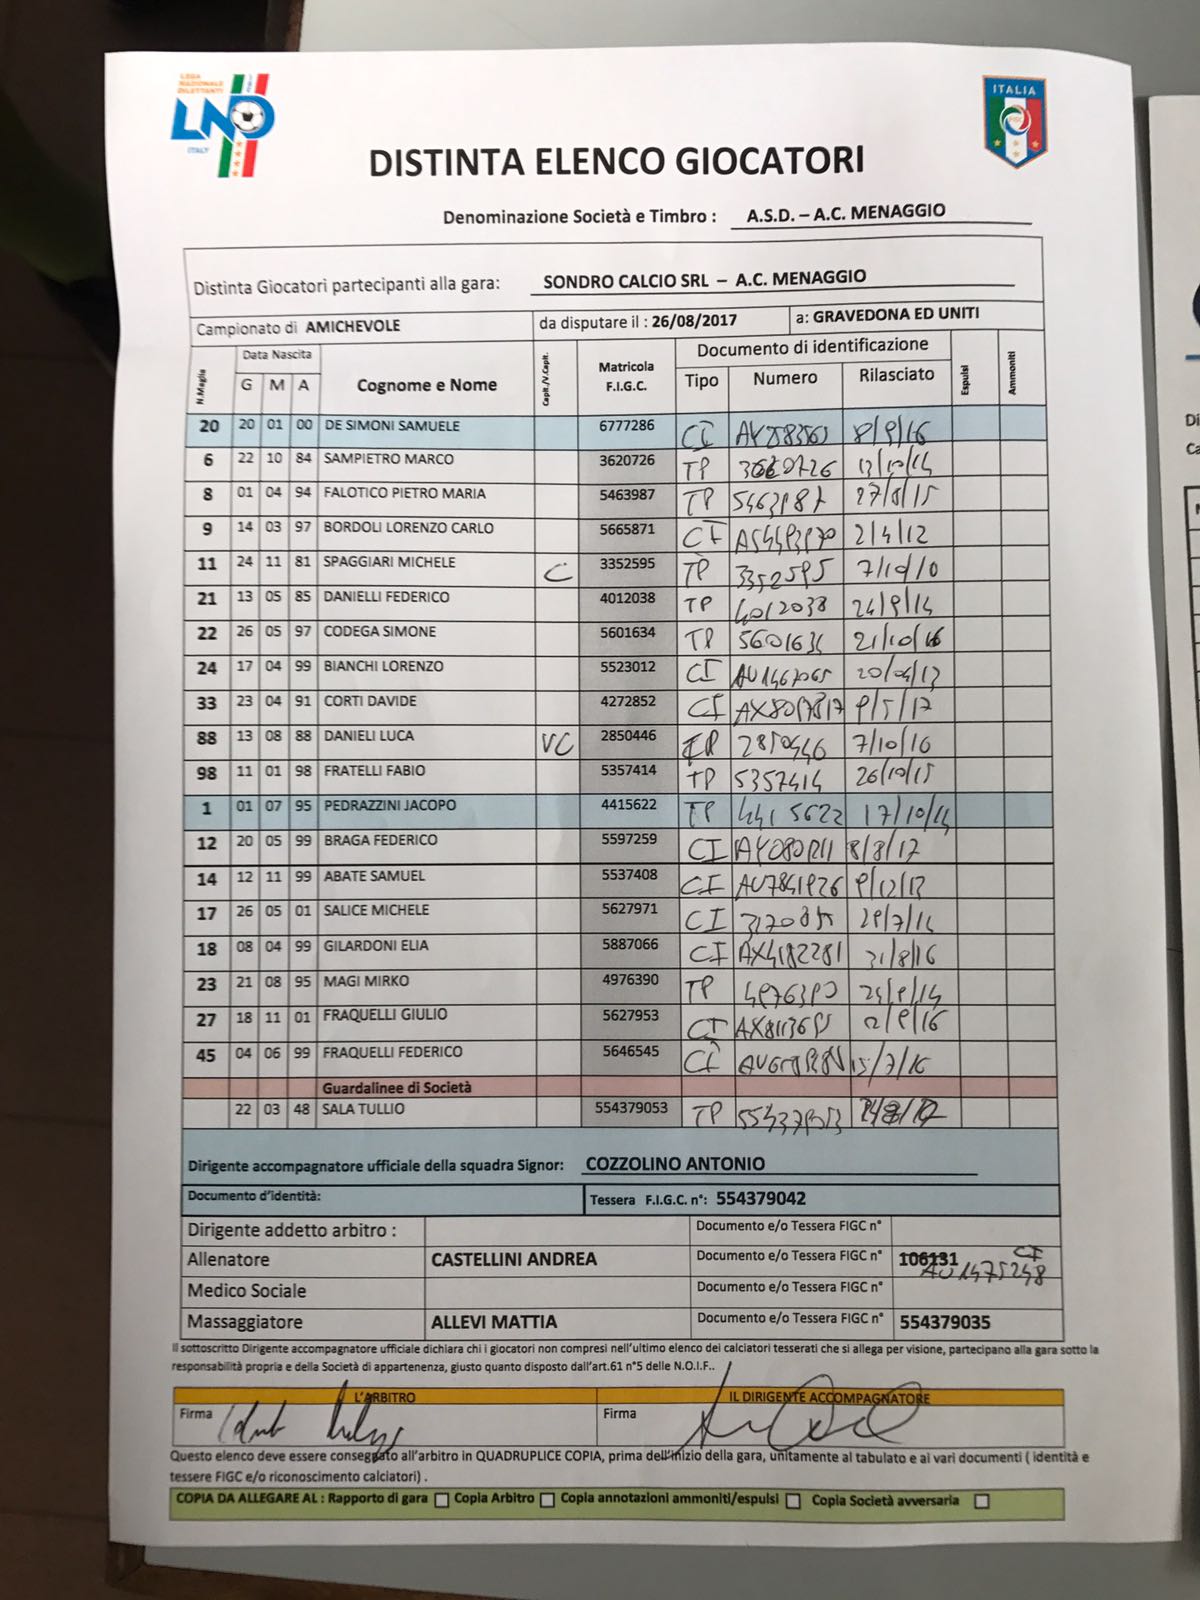 LEGA
NAZIONALE
DILETTANTI
LND
ITALY
ITALIA
FIGC
DISTINTA ELENCO GIOCATORI
Denominazione Società e Timbro : A.S.D. – A.C. MENAGGIO
Distinta Giocatori partecipanti alla gara: SONDRO CALCIO SRL – A.C. MENAGGIO
Campionato di AMICHEVOLE da disputare il : 26/08/2017 a: GRAVEDONA ED UNITI
N.Maglia Data Nascita G M A Cognome e Nome Capit./V.Capit. Matricola F.I.G.C. Documento di identificazione Tipo Numero Rilasciato Espulsi Ammoniti
20 20 01 00 DE SIMONI SAMUELE 6777286 CI 8/9/16
6 22 10 84 SAMPIETRO MARCO 3620726 TP 3620726 13/10/14
8 01 04 94 FALOTICO PIETRO MARIA 5463987 TP 5463987 27/8/15
9 14 03 97 BORDOLI LORENZO CARLO 5665871 CI 2/4/12
11 24 11 81 SPAGGIARI MICHELE C 3352595 TP 3352595 7/10/10
21 13 05 85 DANIELLI FEDERICO 4012038 TP 4012038 24/9/14
22 26 05 97 CODEGA SIMONE 5601634 TP 5601634 21/10/16
24 17 04 99 BIANCHI LORENZO 5523012 CI 20/04/13
33 23 04 91 CORTI DAVIDE 4272852 CI 9/5/17
88 13 08 88 DANIELI LUCA VC 2850446 TP 2850446 7/10/16
98 11 01 98 FRATELLI FABIO 5357414 TP 5357414 26/10/15
1 01 07 95 PEDRAZZINI JACOPO 4415622 TP 4415622 17/10/14
12 20 05 99 BRAGA FEDERICO 5597259 CI 8/8/17
14 12 11 99 ABATE SAMUEL 5537408 CI AU7841926 9/12/13
17 26 05 01 SALICE MICHELE 5627971 CI 29/7/14
18 08 04 99 GILARDONI ELIA 5887066 CI AX4182281 31/8/16
23 21 08 95 MAGI MIRKO 4976390 TP 4976390 24/9/14
27 18 11 01 FRAQUELLI GIULIO 5627953 CI 2/9/16
45 04 06 99 FRAQUELLI FEDERICO 5646545 CI 15/7/16
Guardalinee di Società
22 03 48 SALA TULLIO 554379053 TP 554379053
Dirigente accompagnatore ufficiale della squadra Signor: COZZOLINO ANTONIO
Documento d'identità: Tessera F.I.G.C. n°: 554379042
Dirigente addetto arbitro : Documento e/o Tessera FIGC n°
Allenatore CASTELLINI ANDREA Documento e/o Tessera FIGC n° 106131 CI
AU1475248
Medico Sociale Documento e/o Tessera FIGC n°
Massaggiatore ALLEVI MATTIA Documento e/o Tessera FIGC n° 554379035
Il sottoscritto Dirigente accompagnatore ufficiale dichiara chi i giocatori non compresi nell'ultimo elenco dei calciatori tesserati che si allega per visione, partecipano alla gara sotto la
responsabilità propria e della Società di appartenenza, giusto quanto disposto dall'art.61 n°5 delle N.O.I.F..
L'ARBITRO IL DIRIGENTE ACCOMPAGNATORE
Firma Firma
Questo elenco deve essere consegnato all'arbitro in QUADRUPLICE COPIA, prima dell'inizio della gara, unitamente al tabulato e ai vari documenti ( identità e
tessere FIGC e/o riconoscimento calciatori) .
COPIA DA ALLEGARE AL : Rapporto di gara Copia Arbitro Copia annotazioni ammoniti/espulsi Copia Società avversaria